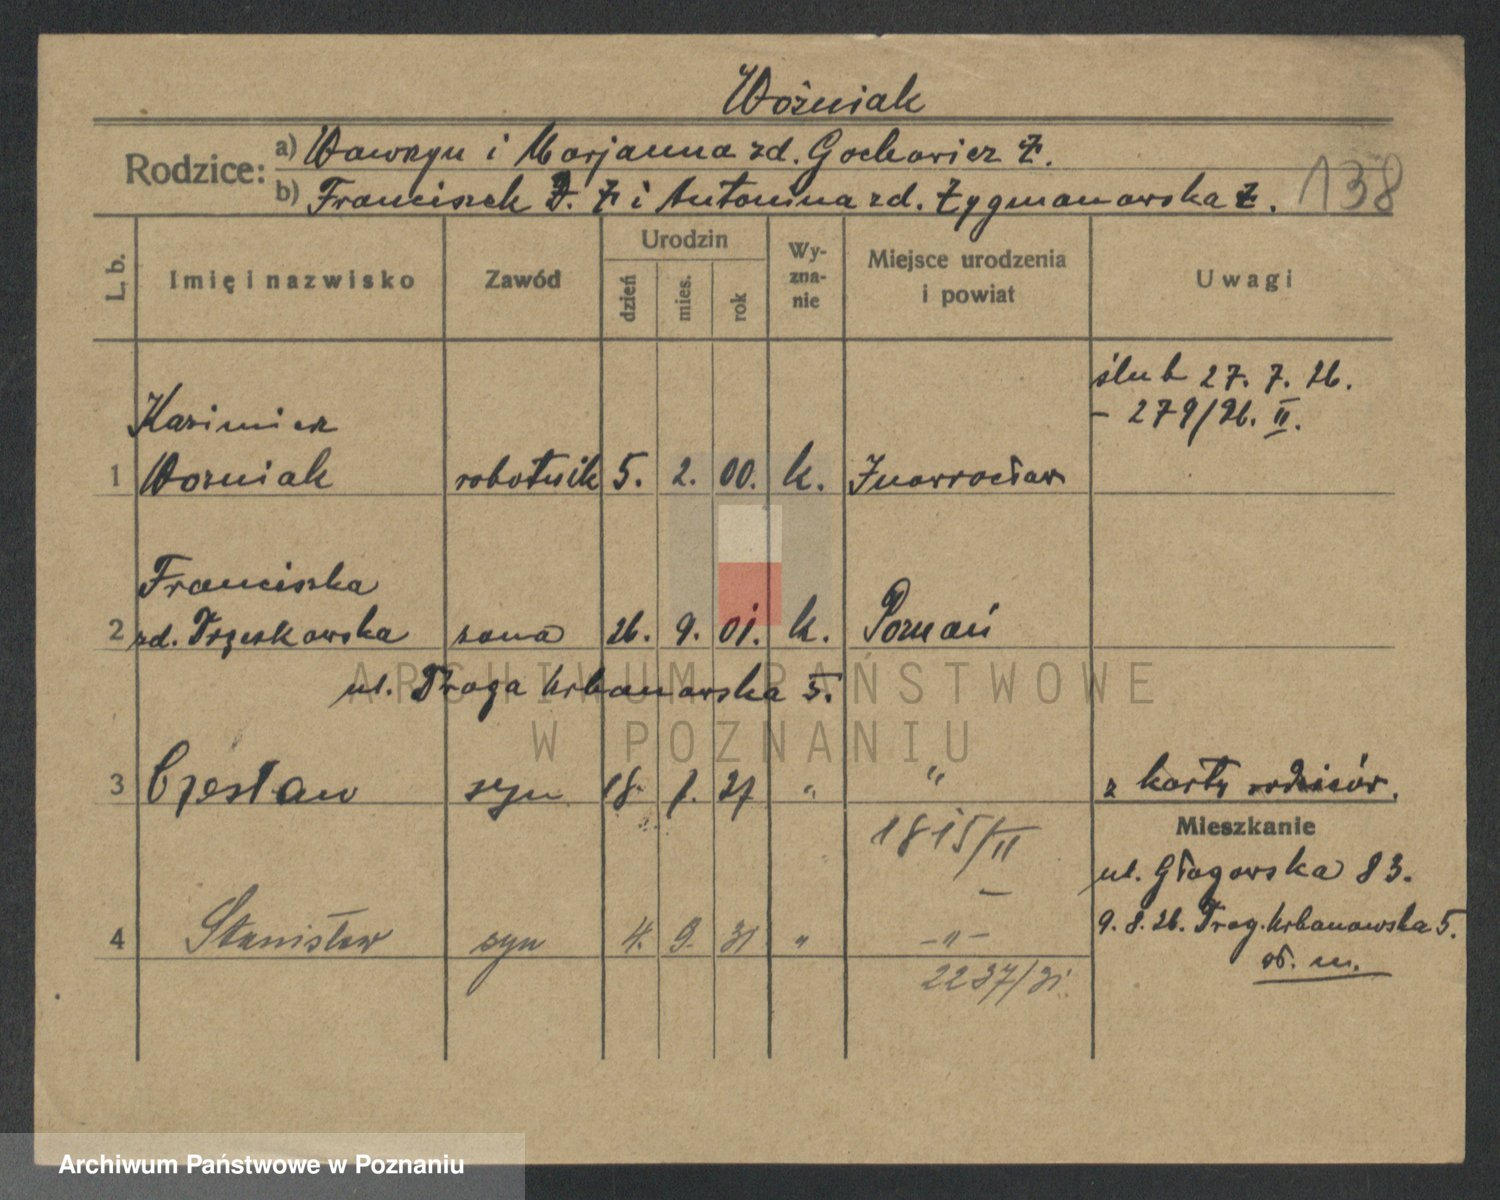 Woźniak
Rodzice: a) Wawrzyn i Marjanna zd. Gochowicz Ż.
b) Franciszek Ż. i Antonina zd. Zygmanowska Ż.
138
L. b. Imię i nazwisko Zawód Urodzin dzień mies. rok Wyznanie Miejsce urodzenia i powiat Uwagi
ślub 27. 7. 26.
– 279/26. II.
Kazimierz
1 Woźniak robotnik 5. 2. 00. k. Inowrocław
Franciszka
2 zd. Trzeskowska żona 26. 9. 01. k. Poznań
ul. Droga Urbanowska 5.
3 Czesław syn 18. 1. 27 " " z karty rodziców.
1815/II
Mieszkanie
ul. Głogowska 83.
9. 8. 26. Drog. Urbanowska 5.
4 Stanisław syn 4. 9. 31 " –"–
2237/31
ARCHIWUM PAŃSTWOWE
W POZNANIU
Archiwum Państwowe w Poznaniu